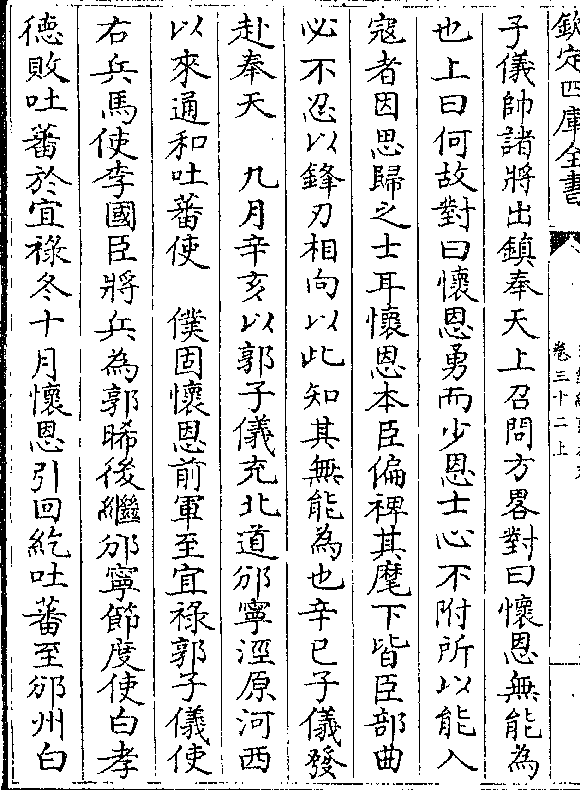 欽定四庫全書
卷三十二上
子儀帥諸將出鎮奉天上召問方畧對曰懷恩無能為
也上曰何故對曰懷恩勇而少恩士心不附所以能入
寇者因思歸之士耳懷恩本臣偏裨其麾下皆臣部曲
必不忍以鋒刃相向以此知其無能為也辛巳子儀發
赴奉天　九月辛亥以郭子儀充北道邠寧涇原河西
以來通和吐蕃使　僕固懷恩前軍至宜祿郭子儀使
右兵馬使李國臣將兵為郭晞後繼邠寧節度使白孝
德敗吐蕃於宜祿冬十月懷恩引回紇吐蕃至邠州白